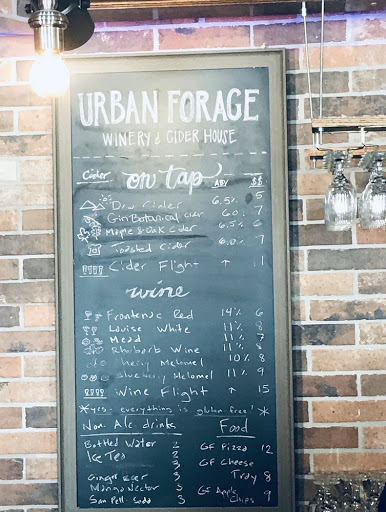 URBAN FORAGE
WINERY & CIDER HOUSE
Cider on tap ABV $$
Dry Cider 6.5% 5
Gin Botanical Cider 6.0% 7
Maple & Oak Cider 6.5% 6
Toasted Cider 6.0% 7
Cider Flight ↑ 11
wine
Frontenac Red 14% 6
Louise White 11% 8
Mead 11% 7
Rhubarb Wine 11% 8
Cherry Melomel 10% 8
Blueberry Melomel 11% 9
Wine Flight ↑ 15
*yes. everything is gluten free! *
Non. Alc. drinks Food
Bottled Water 2 GF Pizza 12
Ice Tea 2 GF Cheese
3 Tray 8
Ginger Beer 3 GF Apple
Mango Nectar 3 Chips 9
San Pell. Soda 3